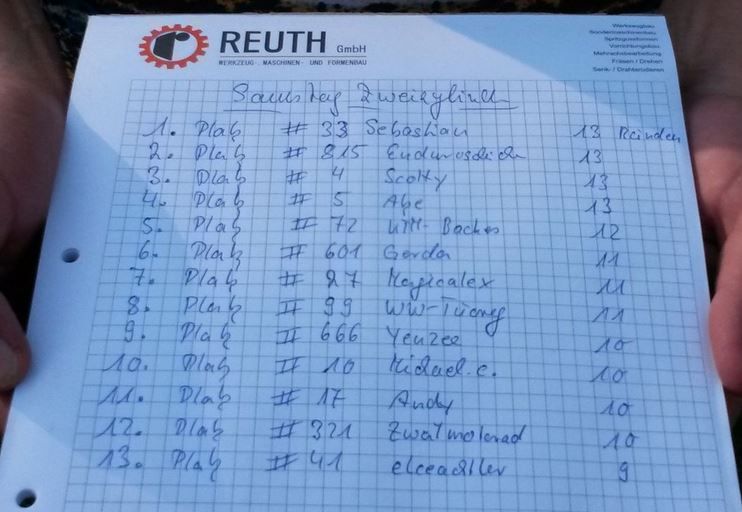 REUTH GmbH
WERKZEUG-, MASCHINEN- UND FORMENBAU
Werkzeugbau
Sondermaschinenbau
Spritzgussformen
Vorrichtungsbau
Mehrachsbearbeitung
Fräsen / Drehen
Senk- / Drahterodieren
Samstag Zweizylinder
1. Platz # 33 Sebastian 13 Runden
2. Platz # 815 13
3. Platz # 4 Scotty 13
4. Platz # 5 Ape 13
5. Platz # 72 KTM- 12
6. Platz # 601 11
7. Platz # 27 Magicalex 11
8. Platz # 99 11
9. Platz # 666 Yenzee 10
10. Platz # 10 Michael.c. 10
11. Platz # 17 Andy 10
12. Platz # 321 10
13. Platz # 41 9